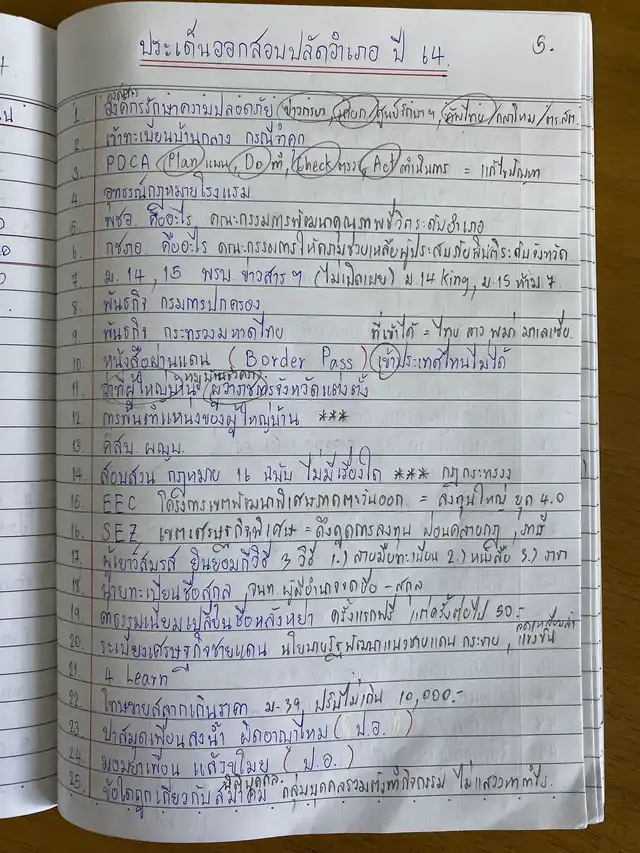 5.
ประเด็นออกสอบปลัดอำเภอ ปี 64.
1. องค์กรรักษาความปลอดภัย (ข่าวกรอง, ศูนย์รักษาฯ, /กลาโหม/ตร.สต.
2. เจ้าทะเบียนบ้านกลาง กรณีจำคุก
3. PDCA Plan แผน, Do ทำ, Check ตรวจ, Act ดำเนินการ = แก้ไขปัญหา
4. อุทธรณ์กฎหมายโรงแรม
5. พชอ. คืออะไร คณะกรรมการพัฒนาคุณภาพชีวิตระดับอำเภอ
6. กชภอ. คืออะไร คณะกรรมการให้ความช่วยเหลือผู้ประสบภัยพิบัติระดับจังหวัด
7. ม.14, 15 พรบ. ข่าวสารฯ (ไม่เปิดเผย) ม.14 King, ม.15 ห้าม 7.
8. พันธกิจ กรมการปกครอง
9. พันธกิจ กระทรวงมหาดไทย ที่เข้าได้ = ไทย ลาว พม่า มาเลเซีย.
10. หนังสือผ่านแดน (Border Pass) เข้าประเทศไหนไม่ได้
11. ผู้ใหญ่บ้าน ผู้ว่าราชการจังหวัดแต่งตั้ง
12. การพ้นตำแหน่งของผู้ใหญ่บ้าน ***
13. คัสบ. ผญบ.
14. สอบสวน กฎหมาย 16 ฉบับ ไม่มีเรื่องใด *** กฎกระทรวง
15. EEC โครงการเขตพัฒนาพิเศษภาคตะวันออก. = ลงทุนใหญ่ ยุค 4.0
16. SEZ เขตเศรษฐกิจพิเศษ = ดึงดูดการลงทุน ผ่อนคลายกฎ, ภาษี
17. ผู้เยาว์สมรส ยินยอมกี่วิธี 3 วิธี 1.) ลายมือทะเบียน 2.) หนังสือ 3.) วาจา
18. นายทะเบียนชื่อสกุล, จนท. ผู้มีอำนาจจดชื่อ-สกุล
19. ค่าธรรมเนียมเปลี่ยนชื่อหลังหย่า ครั้งแรกฟรี, แต่ครั้งต่อไป 50.-
20. ระเบียงเศรษฐกิจชายแดน นโยบายรัฐพัฒนาแนวชายแดน กระจาย, ลดเหลื่อมล้ำ แข่งขัน
21. 4 Learn
22. โทษขายสลากเกินราคา ม.39 ปรับไม่เกิน 10,000.-
23. ปาสมุดเพื่อนลงน้ำ ผิดอาญาไหม (ป.อ.)
24. มอมยาเพื่อน แล้วขโมย (ป.อ.)
25. ข้อใดถูกเกี่ยวกับสมาคม นิติบุคคล. กลุ่มบุคคลรวมตัวทำกิจกรรม ไม่แสวงหากำไร.